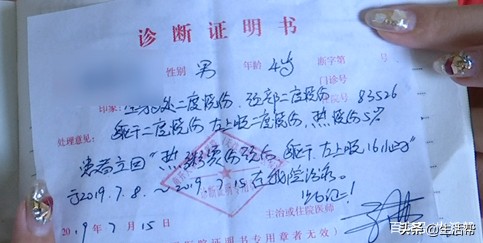 诊断证明书
性别 男 年龄 4岁 医字第 号
门诊号
印象: 二度烫伤, 颈部二度烫伤 83526
处理意见: 躯干二度烫伤 左上肢二度烫伤, 热烫伤5%
患者主因"热粥烫伤颈、躯干、左上肢16小时"
于2019.7.8.~2019.7.15.在我院治疗.
2019年7月15日 主治或住院医师
断证明书专用章者无效)
头条@生活帮